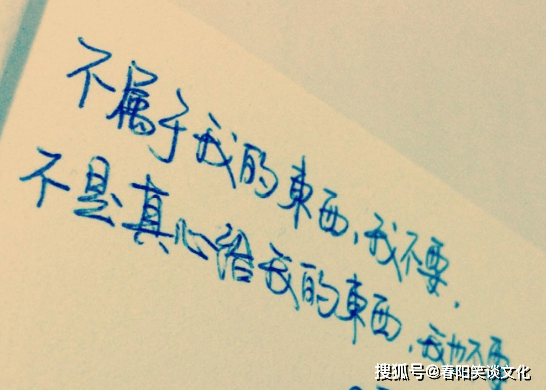 不属于我的東西,我不要.
不是真心给我的東西,我也不要
搜狐号@春阳笑谈文化